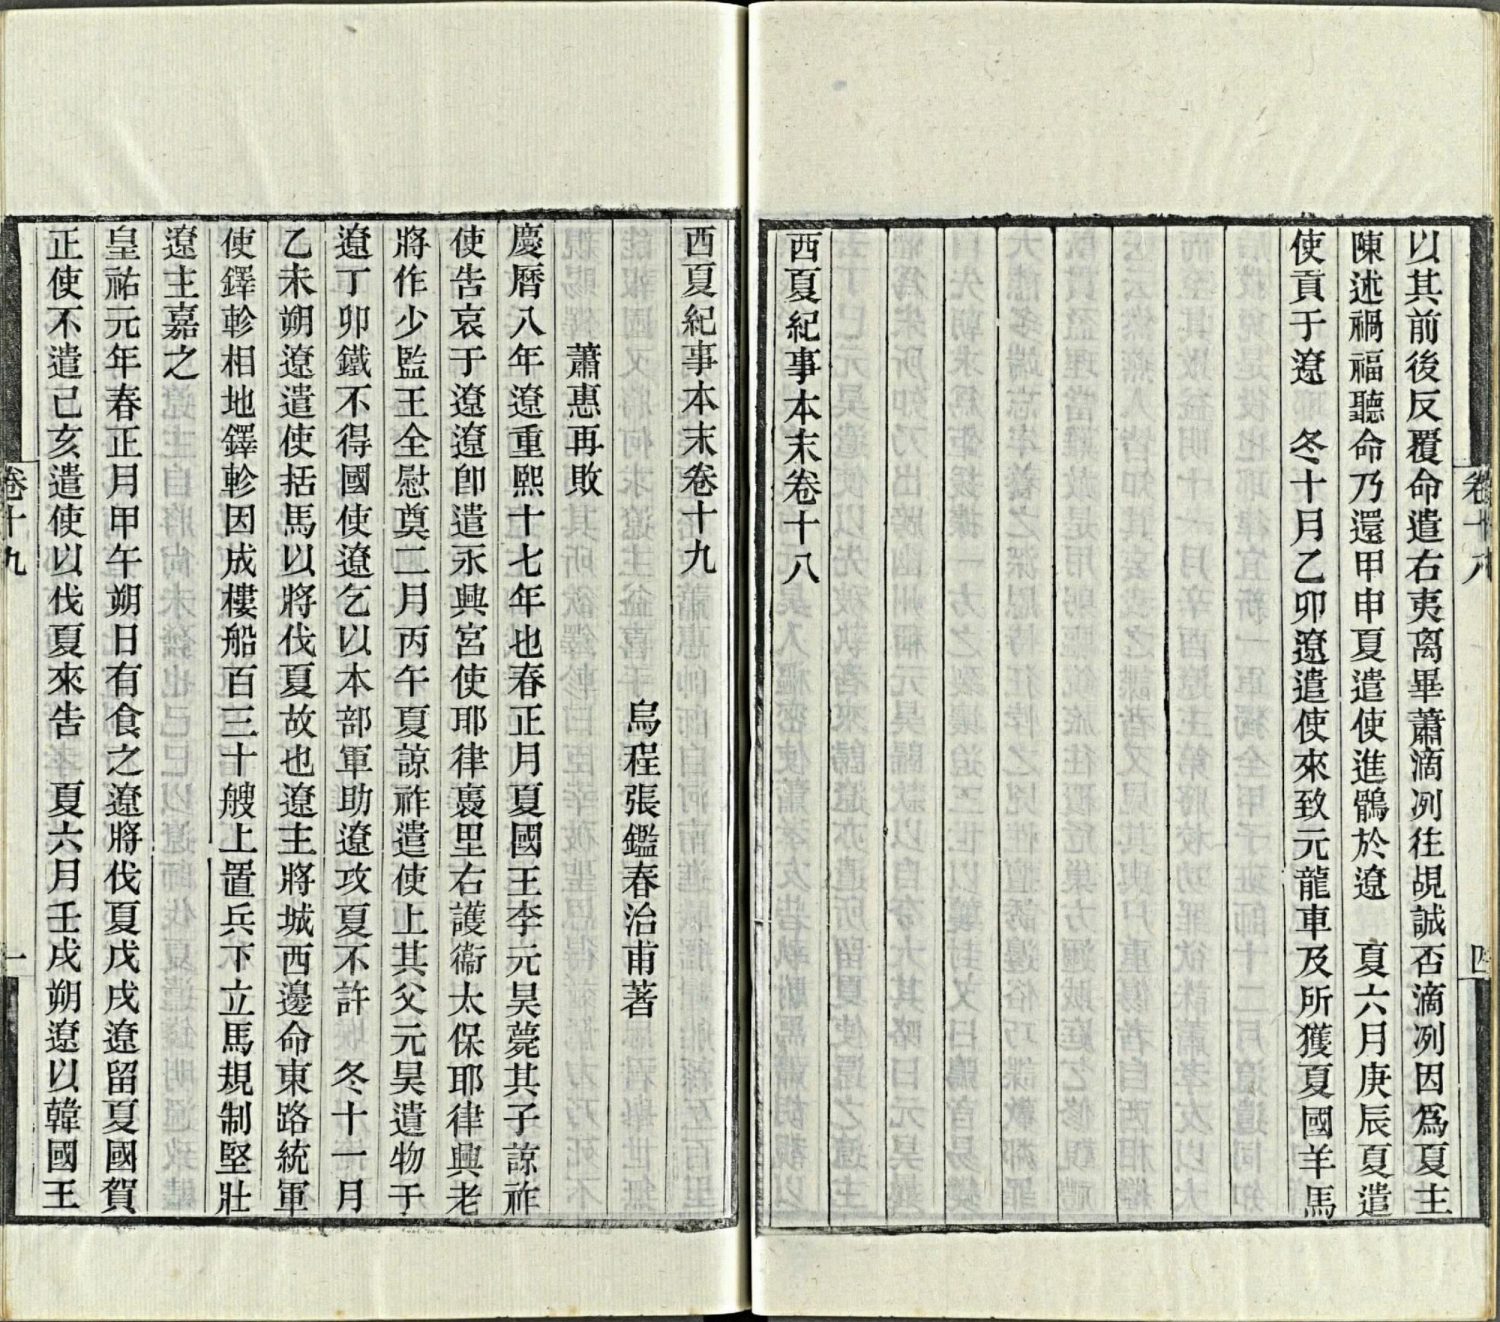 以其前後反覆命遣右夷离畢蕭滴冽往覘誠否滴冽因爲夏主
陳述禍福聽命乃還甲申夏遣使進鶻於遼　夏六月庚辰夏遣
使貢于遼　冬十月乙卯遼遣使來致元龍車及所獲夏國羊馬
西夏紀事本末卷十八
卷十八
四
西夏紀事本末卷十九
烏程張鑑春治甫著
蕭惠再敗
慶曆八年遼重熙十七年也春正月夏國王李元昊薨其子諒祚
使告哀于遼遼卽遣永興宮使耶律裹里右護衞太保耶律興老
將作少監王全慰奠二月丙午夏諒祚遣使上其父元昊遺物于
遼丁卯鐵不得國使遼乞以本部軍助遼攻夏不許　冬十一月
乙未朔遼遣使括馬以將伐夏故也遼主將城西邊命東路統軍
使鐸軫相地鐸軫因成樓船百三十艘上置兵下立馬規制堅壯
遼主嘉之
皇祐元年春正月甲午朔日有食之遼將伐夏戊戌遼留夏國賀
正使不遣己亥遣使以伐夏來告　夏六月壬戌朔遼以韓國王
卷十九
一